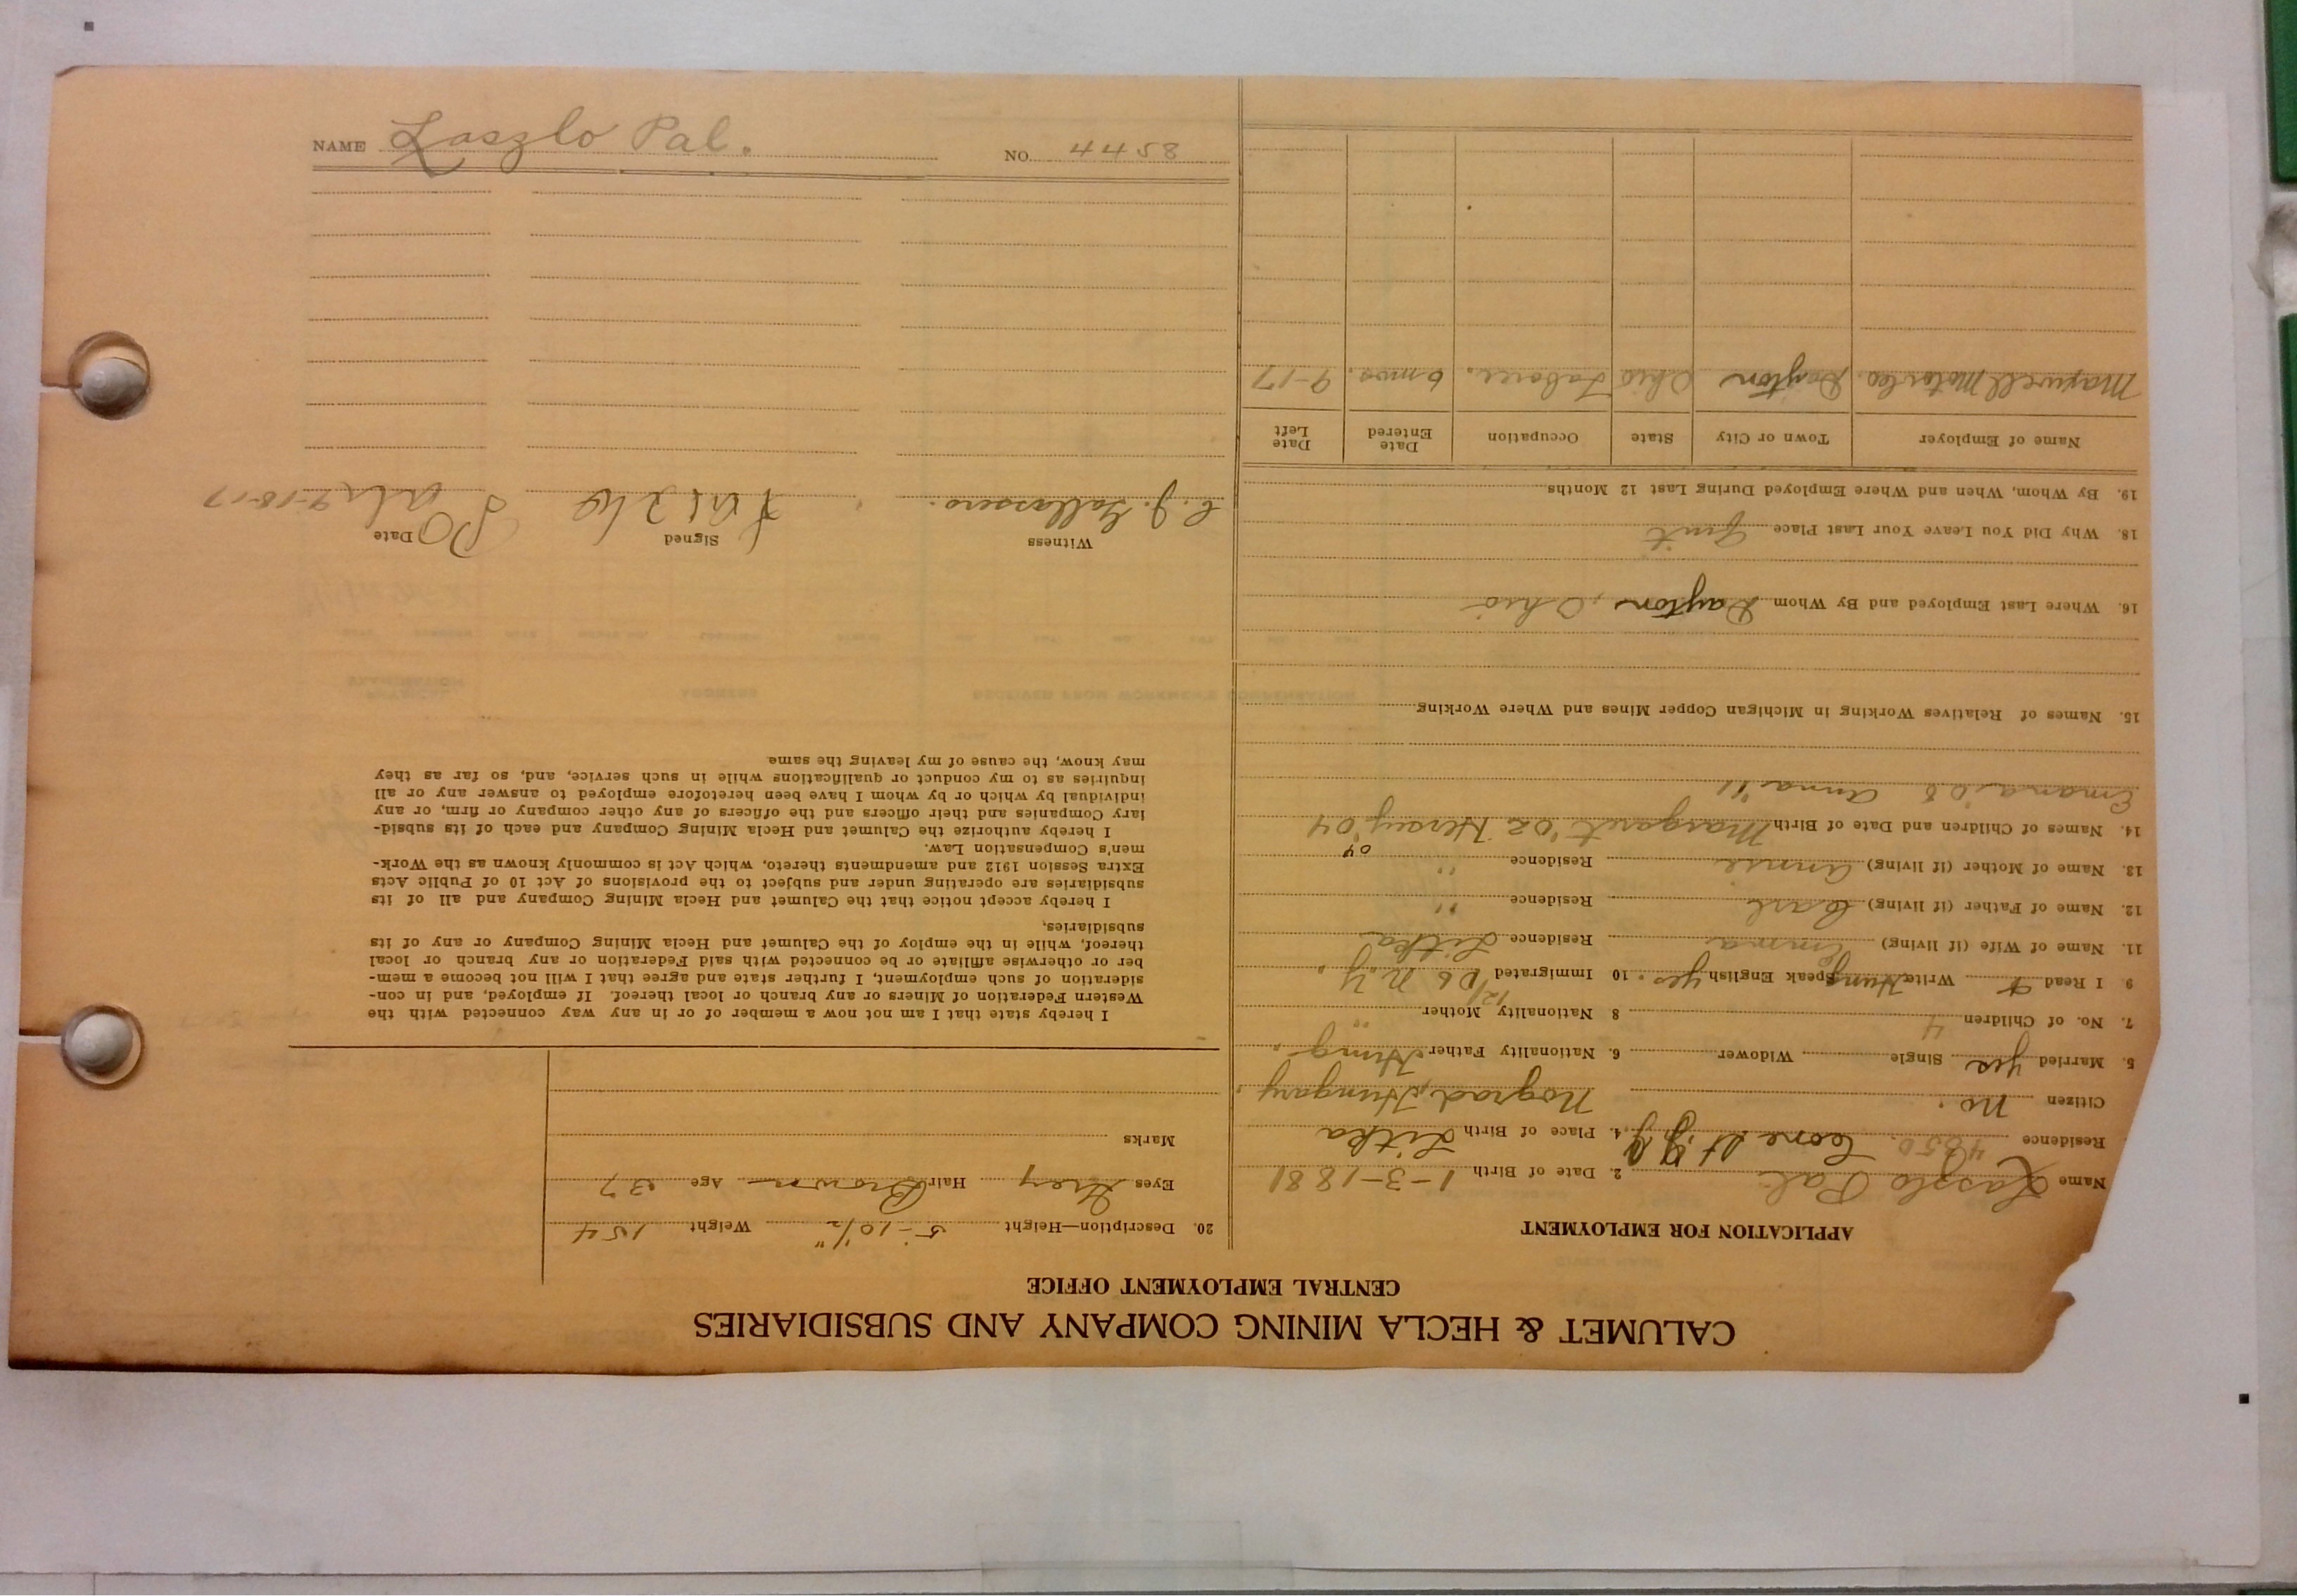 CALUMET & HECLA MINING COMPANY AND SUBSIDIARIES
CENTRAL EMPLOYMENT OFFICE
APPLICATION FOR EMPLOYMENT
Name Laszlo Pal. 2. Date of Birth 1-3-1881
Residence 4350. Cone St 4. Place of Birth Litka
Citizen no. Nograd, Hungary.
5. Married yes Single Widower 6. Nationality Father Hung.
7. No. of Children 4 8 Nationality Mother "
9 I Read + Write Hung Speak English yes. 10 Immigrated 12/06 N.Y.
11. Name of Wife (if living) Emma Residence Litka
12. Name of Father (if living) Carl Residence "
13. Name of Mother (if living) Annie Residence "
14. Names of Children and Date of Birth Margaret '02 '04
'08 Anna '11
15. Names of Relatives Working in Michigan Copper Mines and Where Working
16. Where Last Employed and By Whom Dayton, Ohio
18. Why Did You Leave Your Last Place Quit
19. By Whom, When and Where Employed During Last 12 Months
Name of Employer Town or City State Occupation Date Entered Date Left
Maxwell Motor Co. Dayton Ohio Laborer. 6 mos. 9-17
20. Description—Height 5'-10½" Weight 154
Eyes Grey Hair Brown Age 37
Marks
I hereby state that I am not now a member of or in any way connected with the
Western Federation of Miners or any branch or local thereof. If employed, and in con-
sideration of such employment, I further state and agree that I will not become a mem-
ber or otherwise affiliate or be connected with said Federation or any branch or local
thereof, while in the employ of the Calumet and Hecla Mining Company or any of its
subsidiaries,
I hereby accept notice that the Calumet and Hecla Mining Company and all of its
subsidiaries are operating under and subject to the provisions of Act 10 of Public Acts
Extra Session 1912 and amendments thereto, which Act is commonly known as the Work-
men's Compensation Law.
I hereby authorize the Calumet and Hecla Mining Company and each of its subsid-
iary Companies and their officers and the officers of any other company or firm, or any
individual by which or by whom I have been heretofore employed to answer any or all
inquiries as to my conduct or qualifications while in such service, and, so far as they
may know, the cause of my leaving the same.
Witness Signed Date
9-18-17
NAME Laszlo Pal. NO. 4458